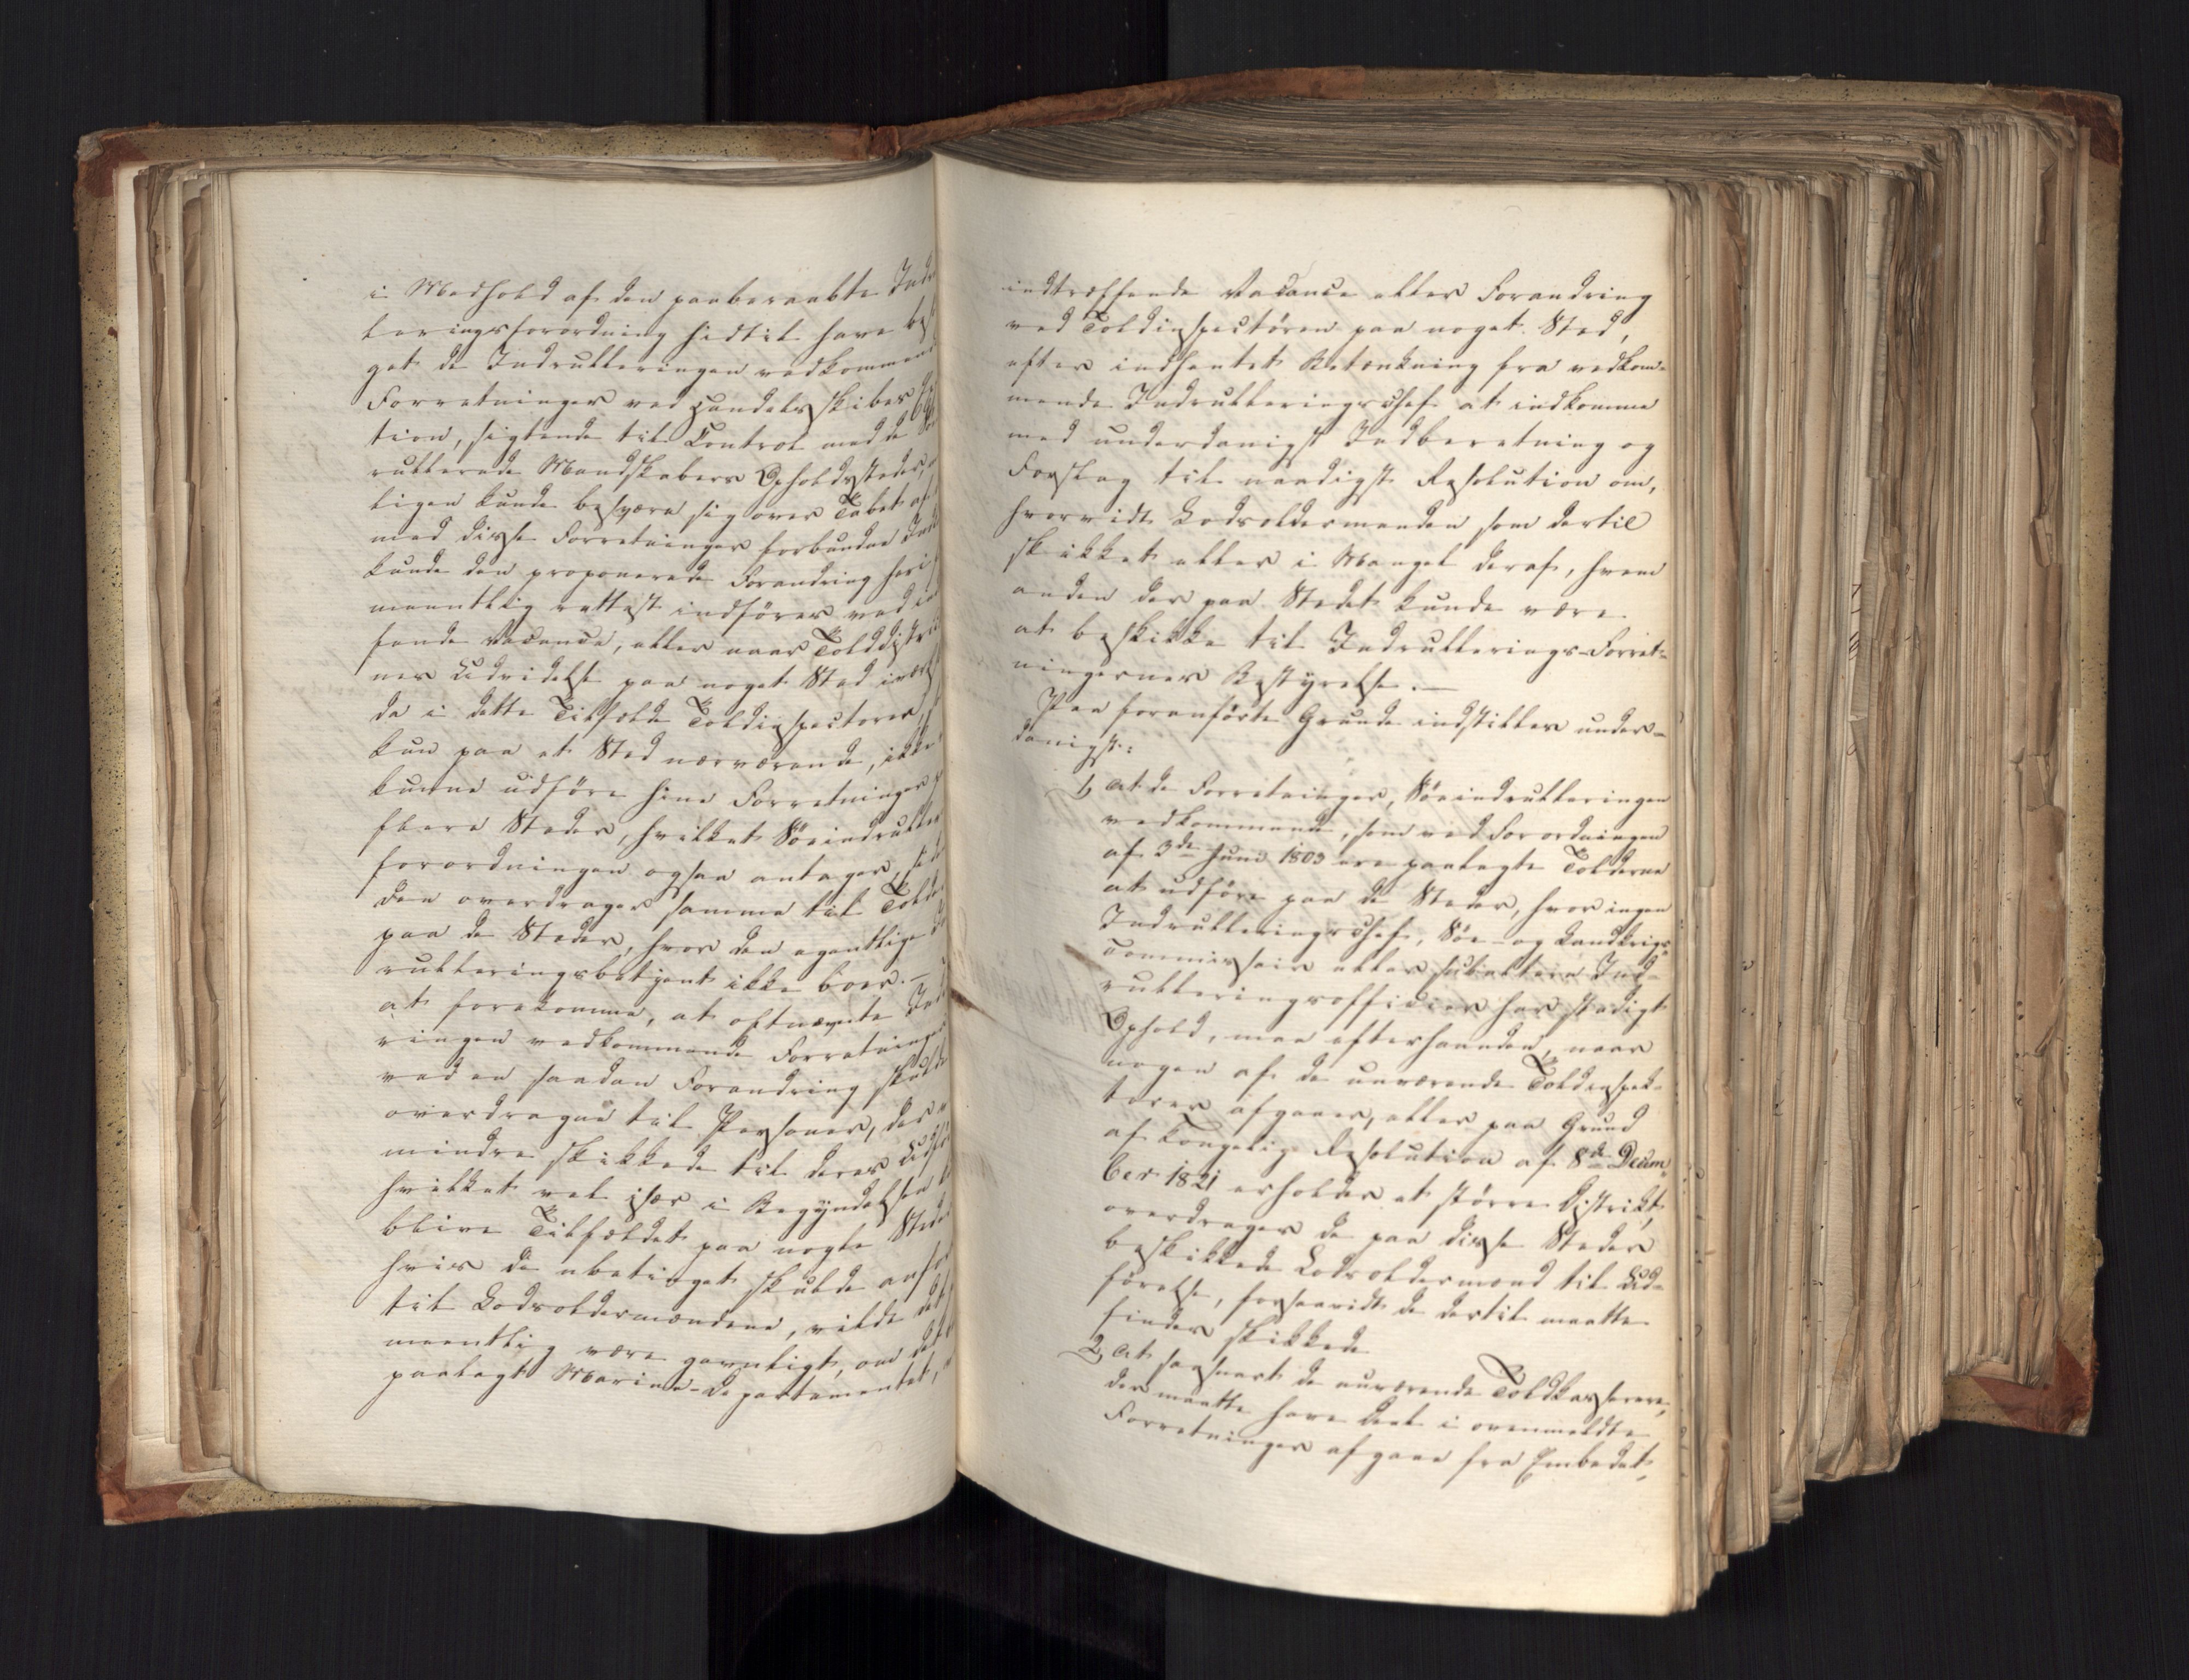 i Medhold af den paaberaabte Ind
leringsforordning hidtil have bes
get de Indrulleringen vedkommend
Forretninger ved Handelsskibes
tion, sigtende til Control med de
rullerede Mandskabers Opholdssteder,
ligen kunde besvære sig over Tabet af
med disse Forretninger forbundne
kunde den proponerede Forandring heri
meentlig rettest indføres ved ind
fende Vacance, eller naar Tolddistric
nes Udvidelse paa noget Sted iværk
da i dette Tilfælde Toldinspecteuren,
kun paa et Sted nærværende, ikke
kunne udføre hine Forretninger
flere Steder, hvilket Søeindruller
forordningen ogsaa antager,
den overdrager samme til Tolder
paa de Steder, hvor den egentlige
rulleringsbetjent ikke boer. —
at forekomme, at oftnævnte Ind
ringen vedkommende Forretninger
ved en saadan Forandring skulde
overdragne til Personer, der
mindre skikkede til deres Udfø
hvilket vel især i Begyndelsen
blive Tilfældet paa nogle Steder
hvis de ubetinget skulde
til Lodsoldermændene, vilde det
meentlig være gavnligt, om det
paalagt Marine-Departementet,
indtræffende Vacance eller Forandring
ved Toldinspectøren paa noget Sted,
efter indhentet Betænkning fra vedkom-
mende Indrulleringschef at indkomme
med underdanigst Indberetning og
Forslag til naadigst Resolution om,
hvorvidt Lodsoldermanden som dertil
skikket eller i Mangel deraf, hvem
anden der paa Stedet kunde være
at beskikke til Indrullerings-Forret-
ningernes Bestyrelse. —
Paa foranførte Grunde indstilles under-
danigst:
1, at de Forretninger, Søeindrulleringen
vedkommende, som ved Forordningen
af 3de Juni 1803 ere paalagte Tolderne
at udføre paa de Steder, hvor ingen
Indrulleringschef, Søe- og Landkrigs-
commissair eller subaltern Ind-
rulleringsofficier har stadigt
Ophold, maa efterhaanden, naar
nogen af de nuværende Toldinspec-
teurer afgaaer, eller paa Grund
af Kongelig Resolution af 8de Decem-
ber 1821 erholder et større District,
overdrages de paa disse Steder
beskikkede Lodsoldermænd til Ud-
førelse, forsaavidt de dertil maatte
findes skikkede
2, at saasnart de nuværende Toldkasserere,
der maatte have Deel i ovenmeldte
Forretninger afgaae fra Embedet,